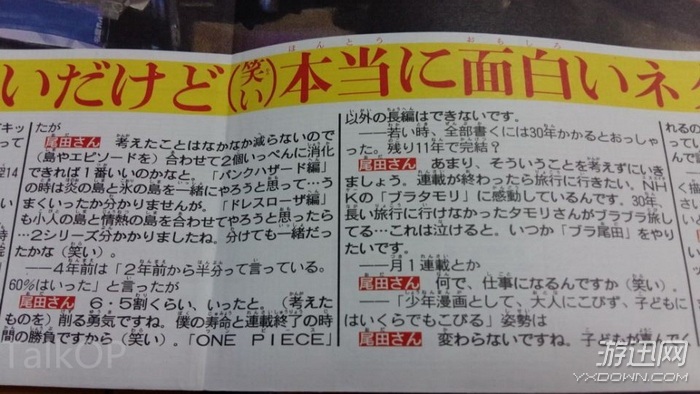 いだけど(笑い)本当に面白いネ
たが
尾田さん 考えたことはなかなか減らないので
(島やエピソードを)合わせて2個いっぺんに消化
できれば1番いいのかなと。「パンクハザード編」
の時は炎の島と氷の島を一緒にやろうと思って…う
まくいったか分かりませんが。「ドレスローザ編」
も小人の島と情熱の島を合わせてやろうと思ったら
…2シリーズ分かかりましたね。分けても一緒だっ
たかな(笑い)。
――4年前は「2年前から半分って言っている。
60%はいった」と言ったが
尾田さん 6・5割くらい、いったと。(考えた
ものを)削る勇気ですね。僕の寿命と連載終了の時
間の勝負ですから(笑い)。「ONE PIECE」
以外の長編はできないです。
――若い時、全部書くには30年かかるとおっしゃ
った。残り11年で完結?
尾田さん あまり、そういうことを考えずにいき
ましょう。連載が終わったら旅行に行きたい。NH
Kの「ブラタモリ」に感動しているんです。30年、
長い旅行に行けなかったタモリさんがブラブラ旅し
てる…これは泣けると。いつか「ブラ尾田」をやり
たいです。
――月1連載とか
尾田さん 何で、仕事になるんですか(笑い)。
――「少年漫画として、大人にこびず、子どもに
はいくらでもこびる」姿勢は
尾田さん 変わらないですね。子ども
TalkOP
游迅网
YXDOWN.COM